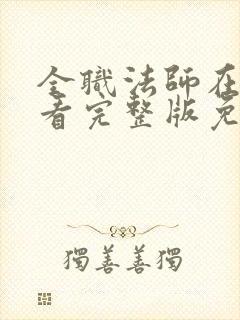 全職法師在
看完整版免
獨善善獨